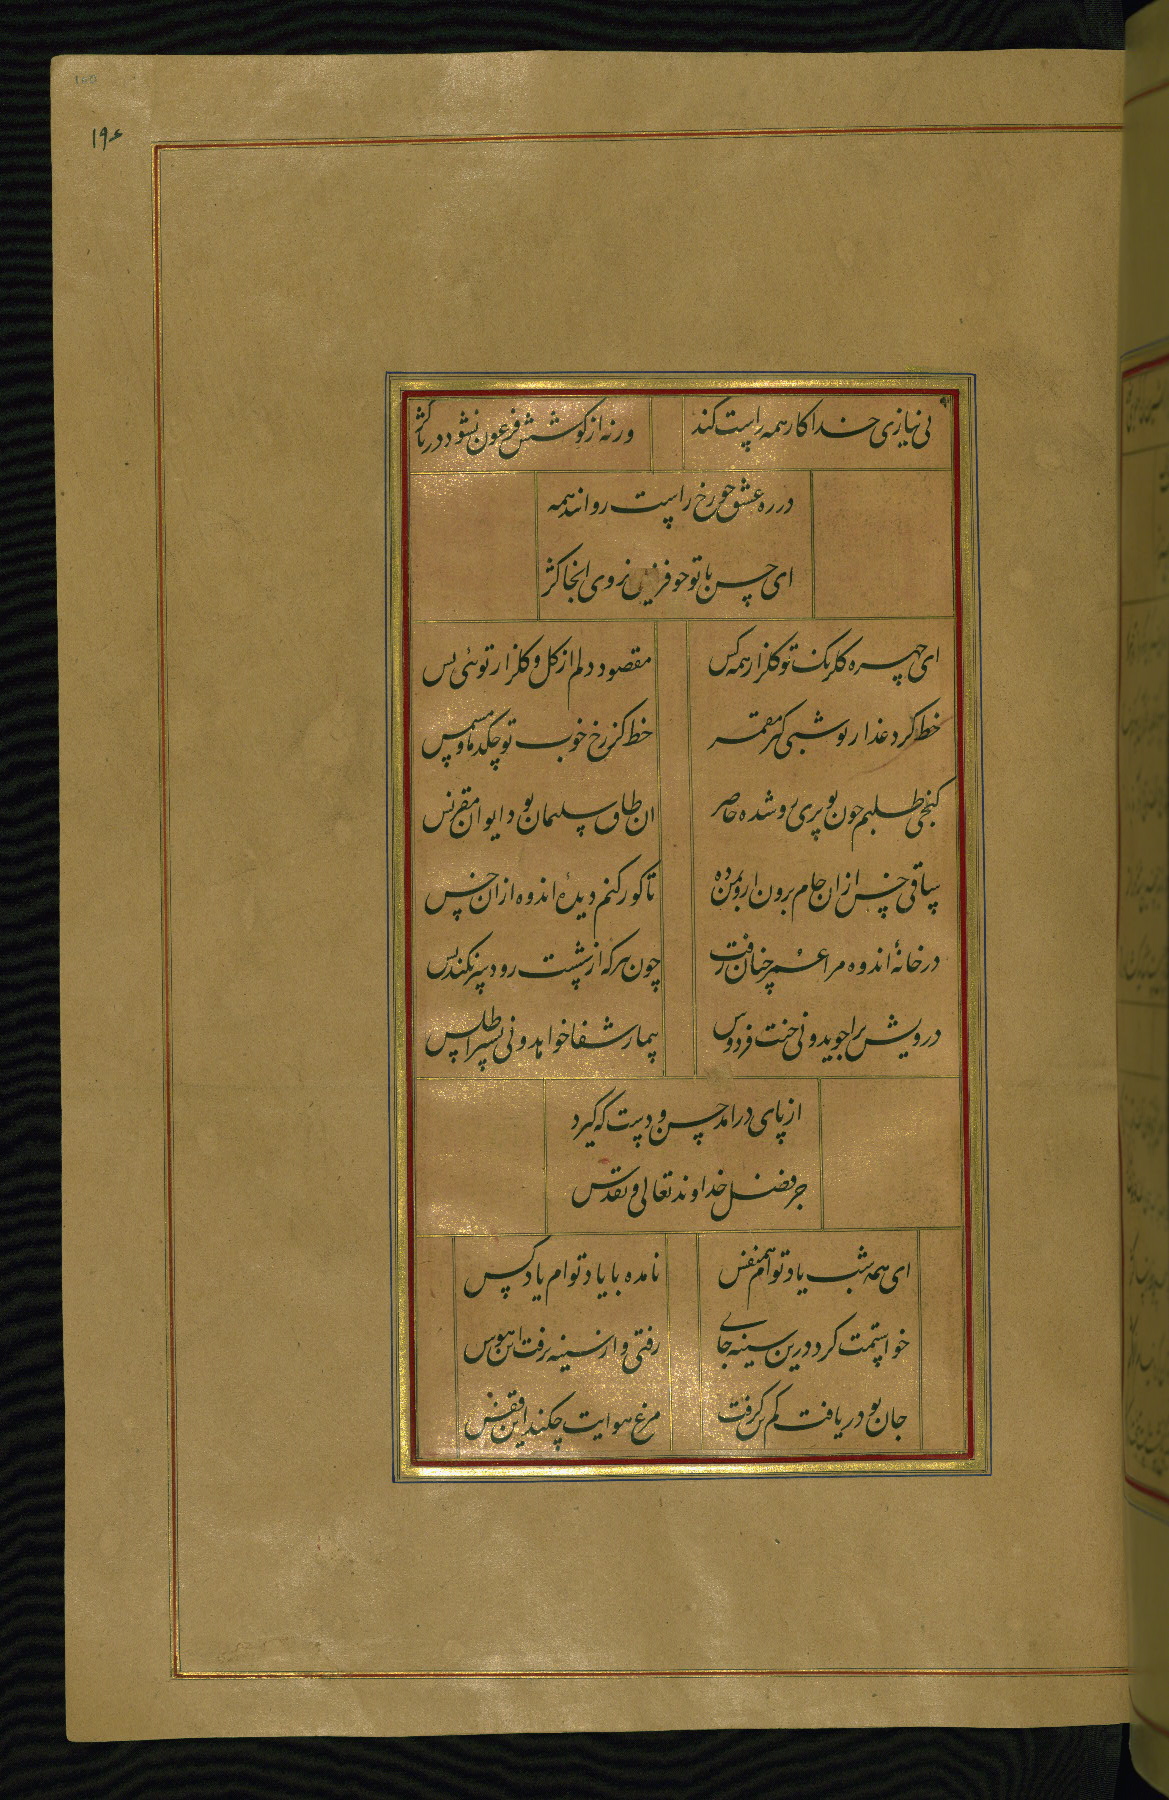 ۱۹۶
بی نیازی خدا کار همه راست کند
ورنه از کوشش فرعون نشود دریا کژ
در ره عشق چو رخ راست روانند همه
ای حسن با تو چو فرزین نروی انجا کژ
ای چهره کلرنک تو کلزار همه کس
مقصود دلم از کل و کلزار توئی بس
خط کرد عذار تو شبی کز مقمر
خط کز رخ خوب تو چکد ماه
کنجی طلبم چون تو پری رو شده حاضر
ان طاق سلیمان بود ایوان مقرنس
ساقی خس از ان جام برون ار و بمن ده
تا کور کنم دیدهٔ اندوه از ان خس
در خانهٔ اندوه مرا عمر چنان رفت
چون هرکه از شست رود تیر نکند پس
درویش ترا جوید و نی جنت فردوس
بیمار شفا خواهد و نی بستر اطلس
از پای درامد حسن و دست که کیرد
جز فضل خداوند تعالی و تقدس
ای همه شب یاد توام همنفس
نامده با یاد توام یاد کس
خواستمت کرد درین سینه جای
رفتی و از سینه نرفت این هوس
جان تو دریافت کم تن کرفت
مرغ هوایت چکند این قفس